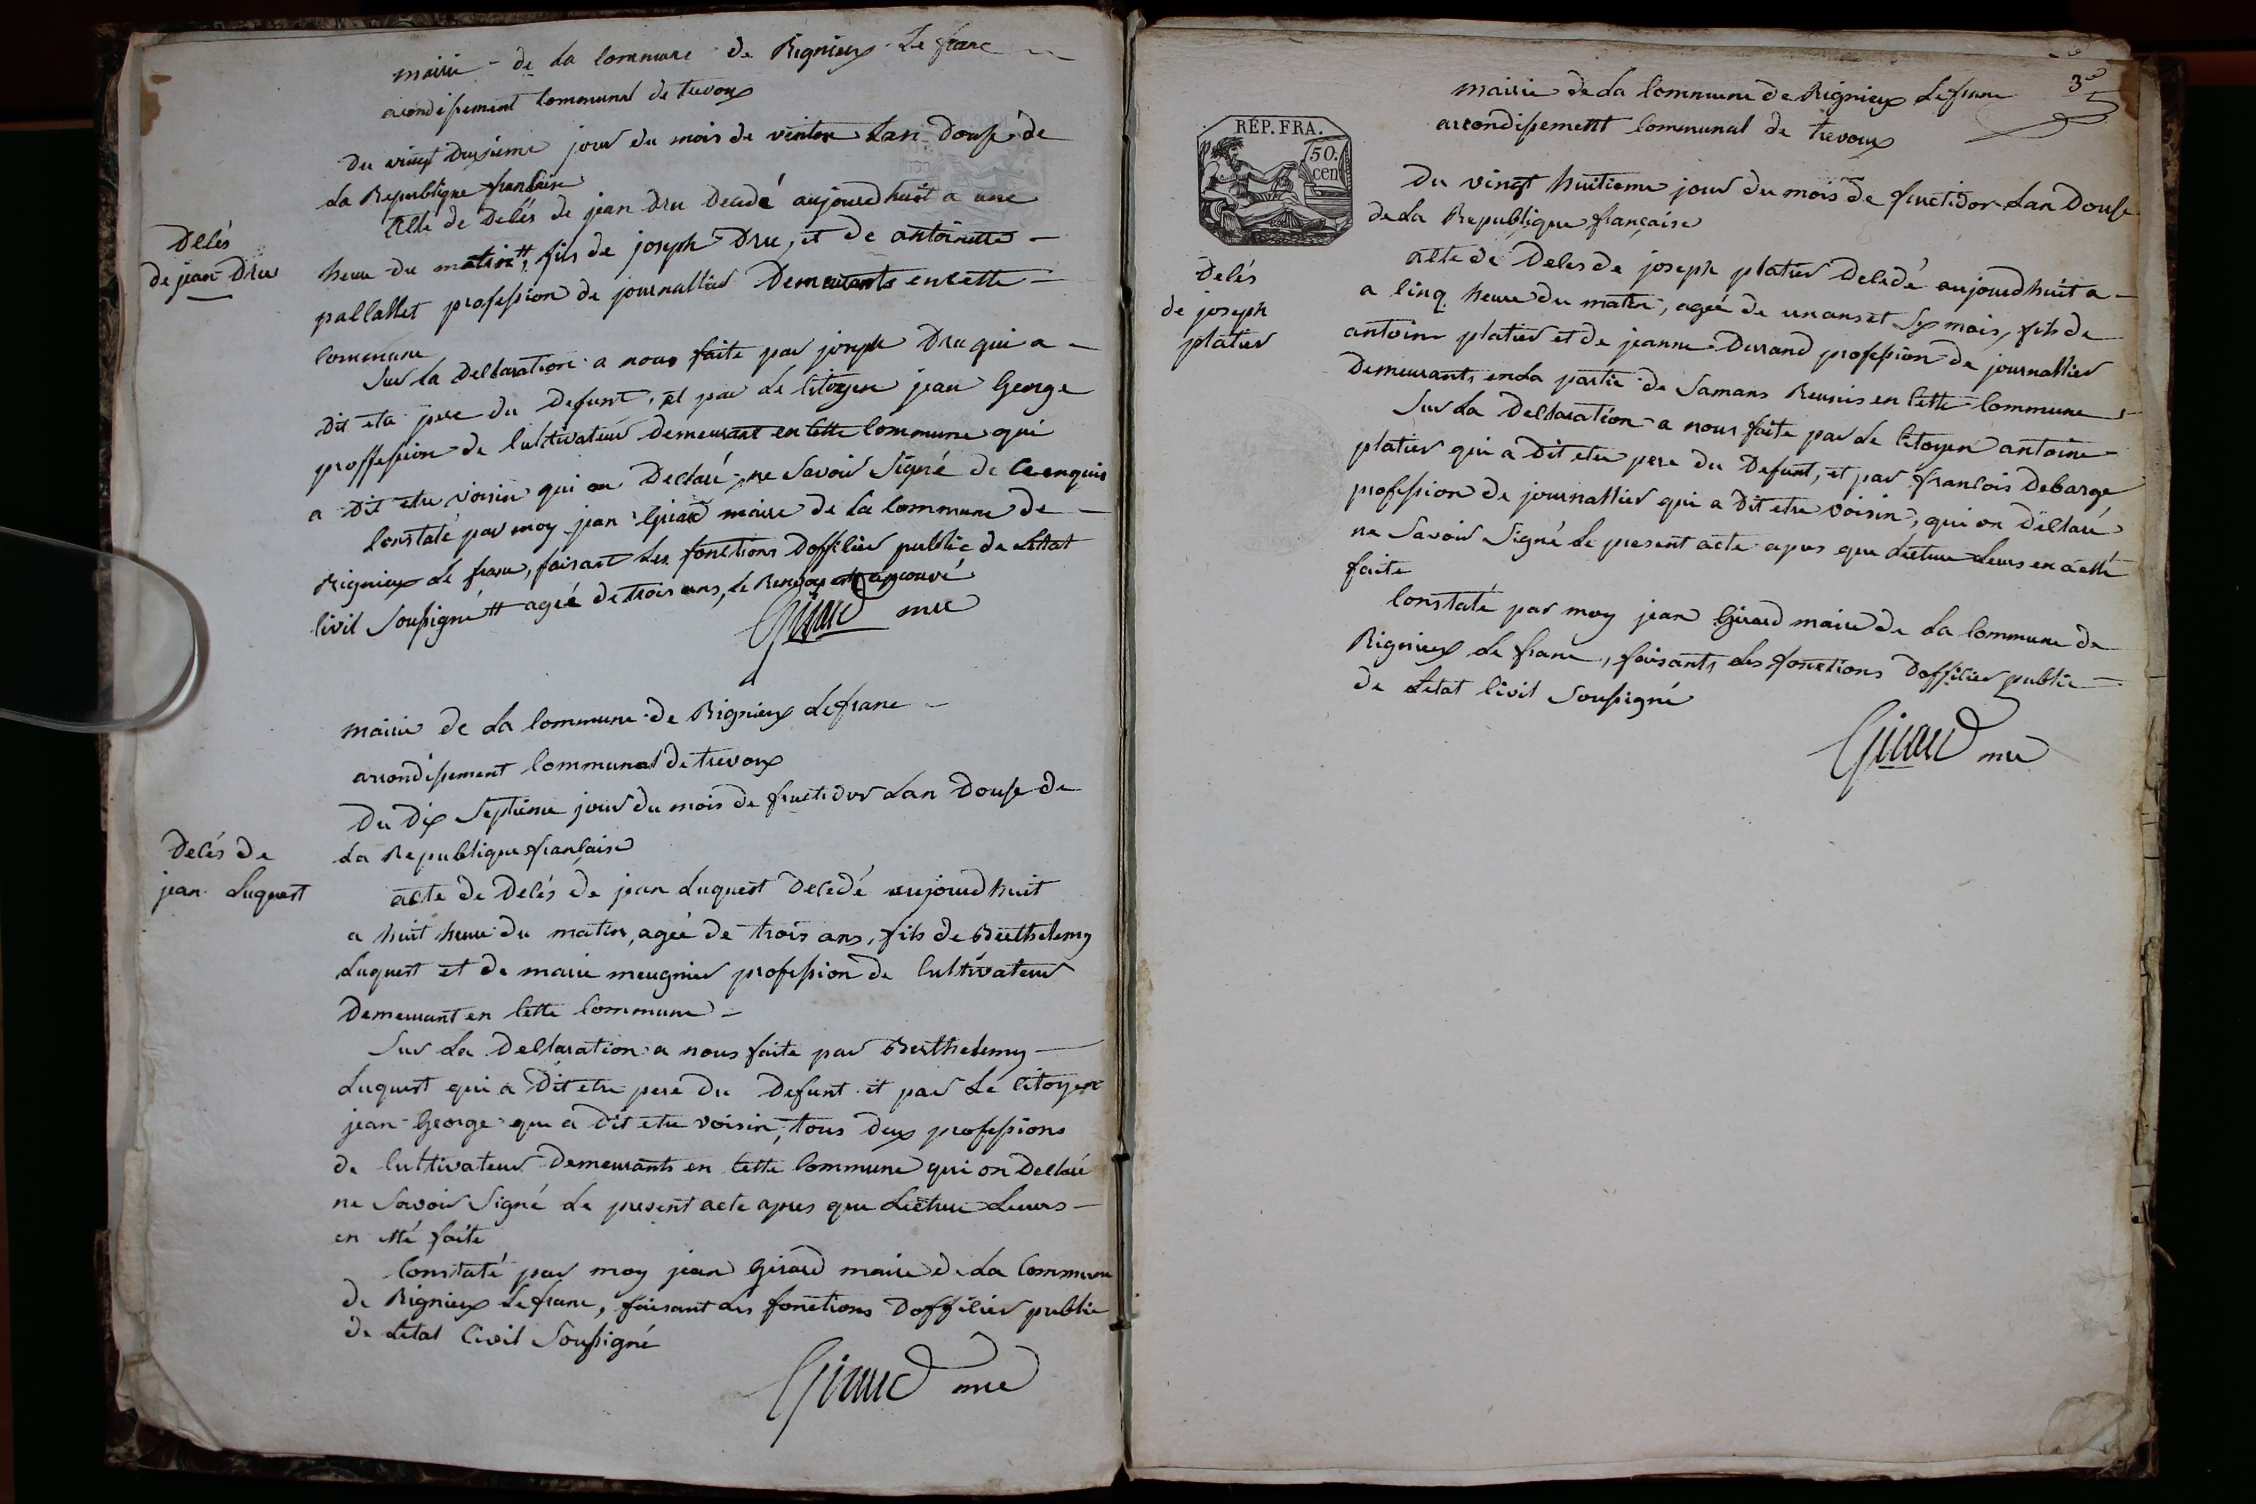 mairie - de La Commune de Rignieux Le franc
arondissement Communal de trevoux
Du vingt Deuxieme jour du mois de ventose Lan Douse de
La Republique francaise
Decés
de jean Dru
acte de Decés de jean Dru Decedé aujourdhuit a une
heure du matin #, fils de joseph Dru, et de antoinette -
pallasset profession de journallier Demeurants en cette -
Commune
Sur La Declaration a nous faite par joseph Dru qui a -
dit etre pere du Defunt, et par Le Citoyen jean George
proffession de Cultivateur Demeurant en Cette Commune qui
a Dit etre voisin qui on Declaré ne Savoir Signé de Ce enquis
Constaté par moy jean Girard maire de La Commune de -
Rignieux Le franc, faisant Les fonctions Dofficier public de Letat
Civil Soussigné # ageé de trois ans, Le Renvoy est aprouvé
Girard mre
mairie de La Commune de Rignieux Lefranc -
arrondissement Communal de trevoux
Du Dix Septieme jour du mois de fructidor Lan Douse de
La Republique francaise
Decés de
jean Luquet
acte de Decés de jean Luquet Decedé aujourdhuit
a huit heure du matin, ageé de trois ans, fils de Berthelemy
Luquet et de marie meugnier profession de Cultivateur
Demeurant en Cette Commune -
Sur La Declaration a nous faite par Berthelemy -
Luquet qui a Dit etre pere du Defunt et par Le Citoyen
jean George que a Dit etre voisin, tous deux professions
de Cultivateur Demeurants en Cette Commune qui on Declaré
ne Savoir Signé Le present acte apres que Lecture Leurs -
en etté faite
Constaté par moy jean Girard maire de La Commune
de Rignieux Lefranc, faisant Les fonctions Dofficier public
de Letat Civil Soussigné
Girard mre
3e
mairie de La Commune de Rignieux Lefranc
arrondissement Communal de trevoux
RÉP. FRA.
50.
cen
Du vingt huitieme jour du mois de fructidor Lan Douse
de La Republique française
Decés
de joseph
platier
acte de Deces de joseph platier Decedé aujourdhuit a -
a Cinq heure du matin, ageé de un ans et Six mois, fils de
antoine platier et de jeanne Durand profession de journallier
Demeurants en La partie de Samans Reunis en Cette Commune -
Sur La Declaration a nous faite par Le Citoyen antoine -
platier qui a Dit etre pere du Defunt, et par francois Debarge
profession de journallier qui a Dit etre voisin, qui on Declaré
ne Savoir Signé Le present acte apres que Lecture Leurs en a etté
faite
Constaté par moy jean Girard maire de La Commune de
Rignieux Le franc, faisants Les fonctions Dofficier public -
de Letat Civil Soussigné
Girard mre